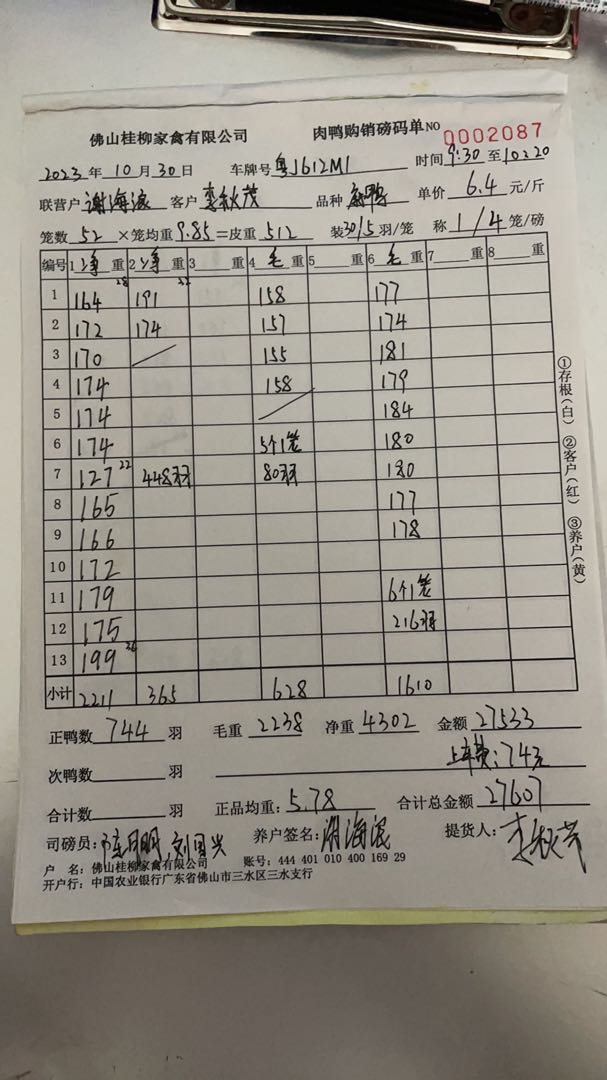 佛山桂柳家禽有限公司 肉鸭购销磅码单NO 0002087
2023年10月30日 车牌号粤J612M1 时间9:30至10:20
联营户谢海滚 客户李秋茂 品种 单价6.4元/斤
笼数52×笼均重9.85=皮重512 装30/5羽/笼 称1/4笼/磅
编号 1净重 2净重 3重 4毛重 5重 6毛重 7重 8重
1 164 28 191 32 158 177
2 172 174 157 174
3 170 155 181
4 174 158 179
5 174 184
6 174 5个1笼 180
7 127 22 448羽 80羽 180
8 165 177
9 166 178
10 172
11 179 6个1笼
12 175 216羽
13 199 26
小计 2211 365 628 1610
正鸭数744羽 毛重2238 净重4302 金额27533
上车费:74元
次鸭数羽
合计数羽 正品均重:5.78 合计总金额27607
司磅员:陈月明,刘国兴 养户签名:谢海滚 提货人:李秋茂
户 名:佛山桂柳家禽有限公司 账号:444 401 010 400 169 29
开户行:中国农业银行广东省佛山市三水区三水支行
①存根(白) ②客户(红) ③养户(黄)